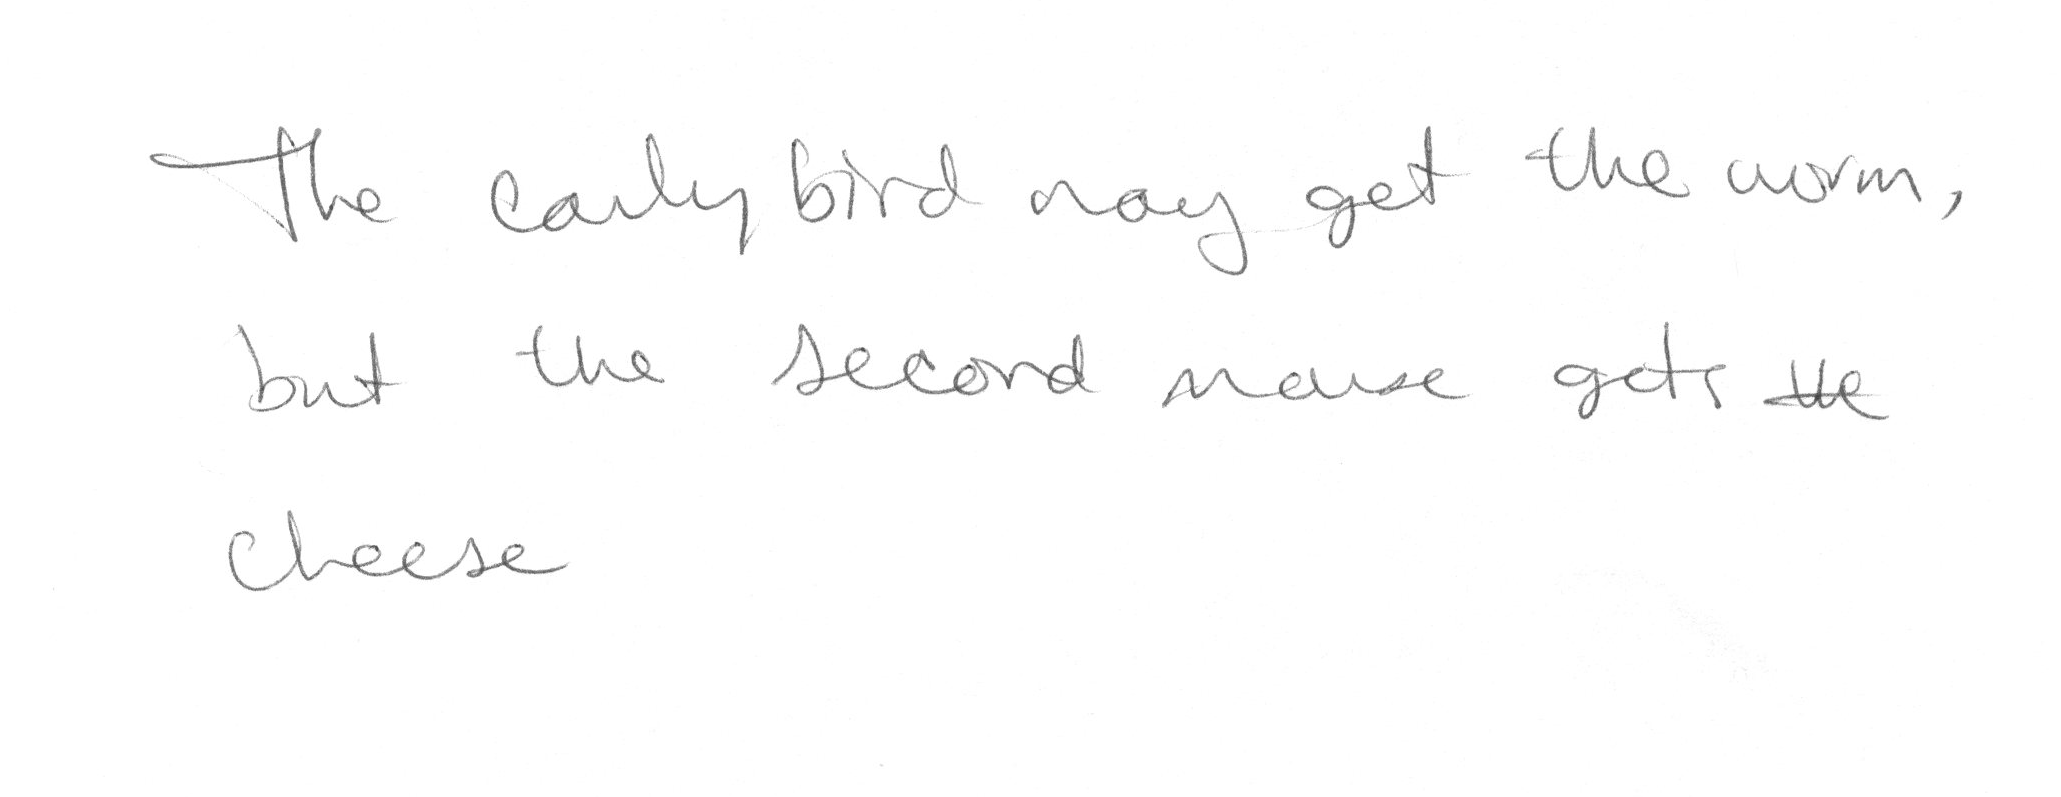 The early bird may get the worm,
but the second mouse gets the
cheese